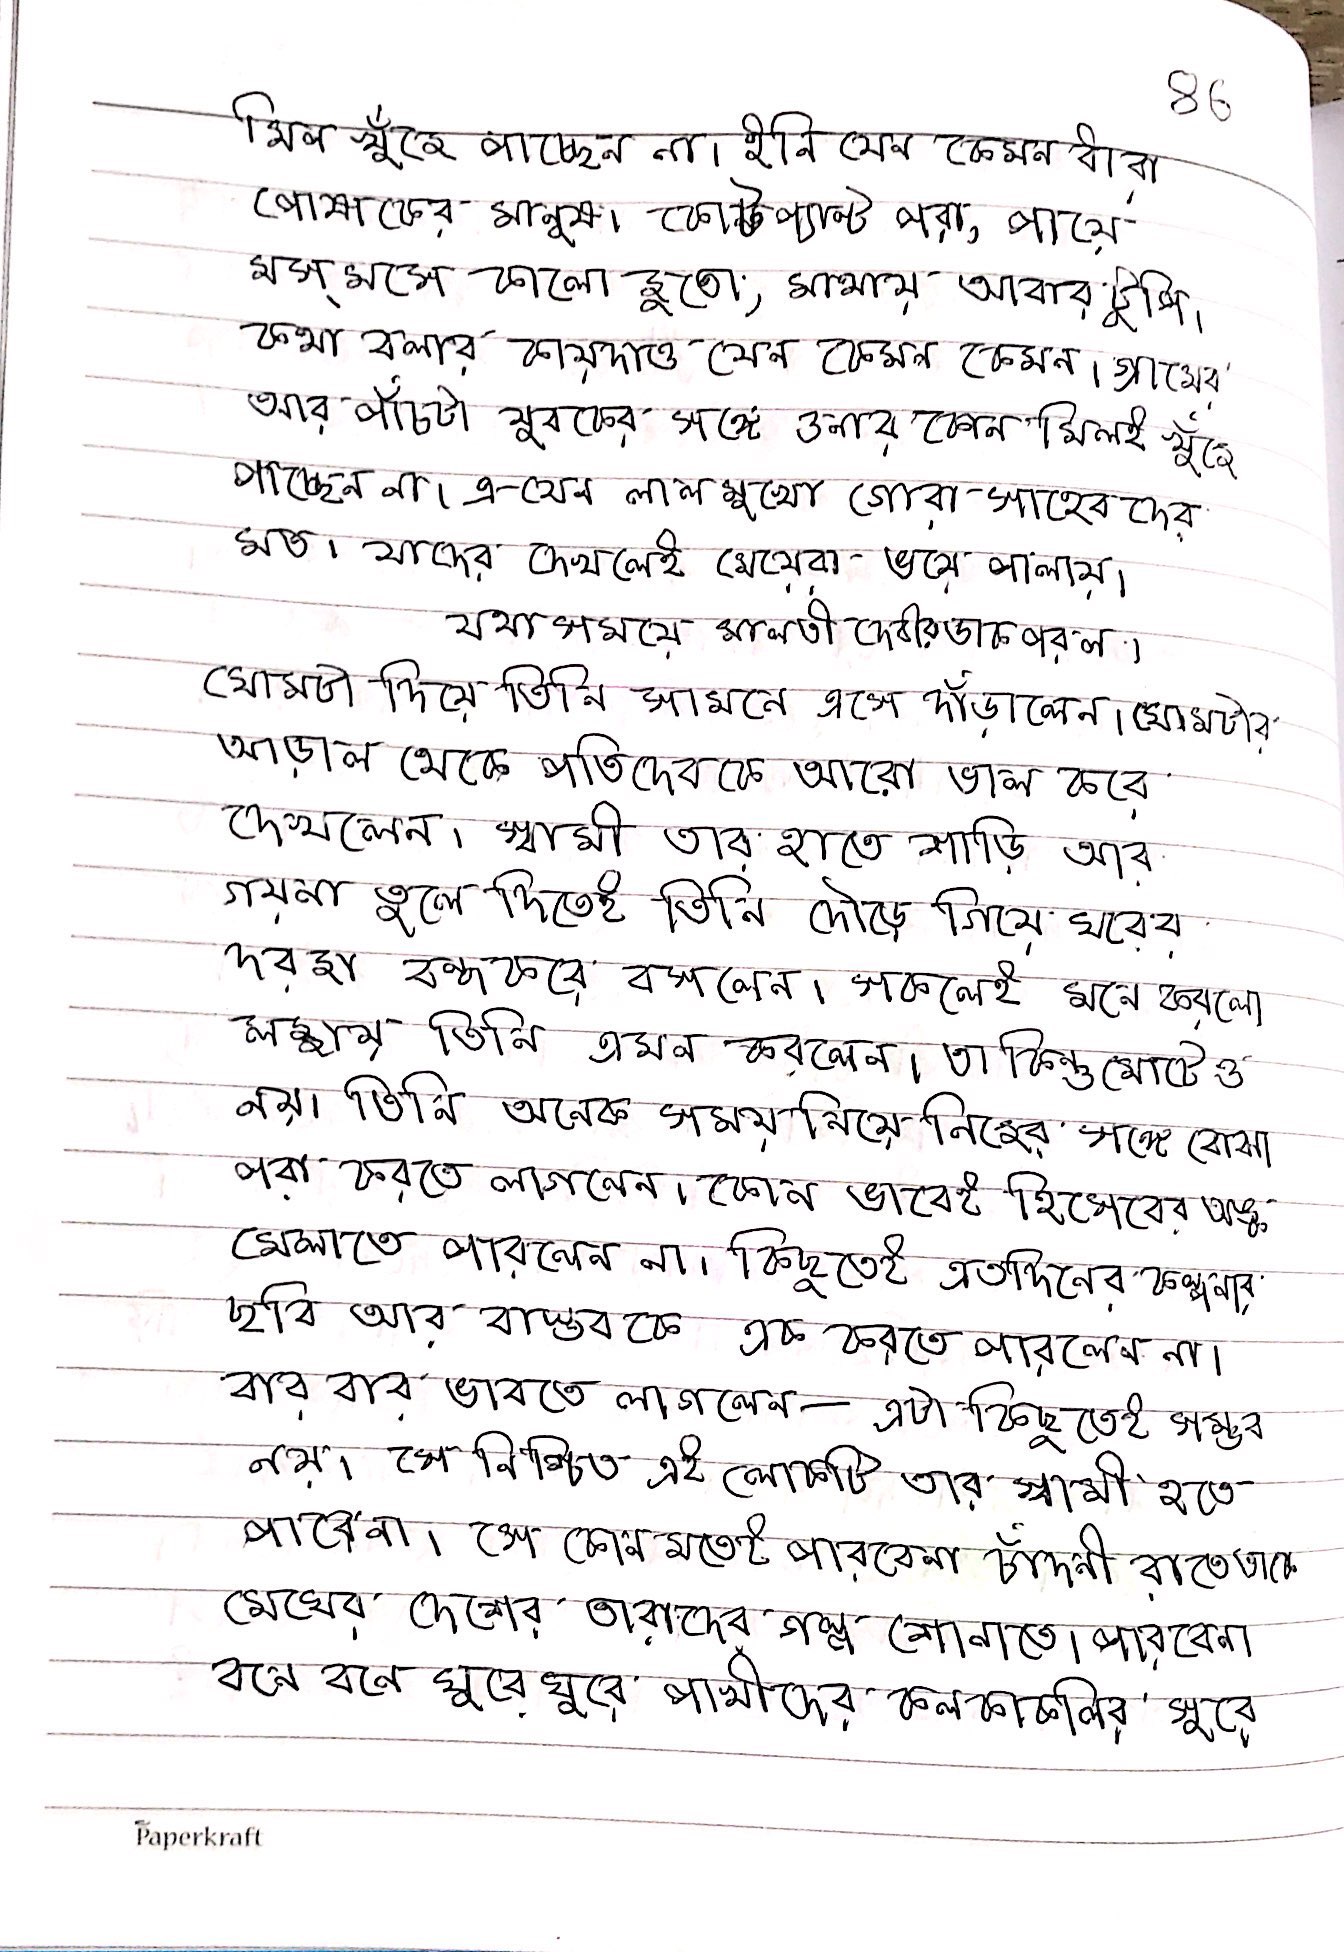 86
মিল খুঁজে পাচ্ছেন না। ইনি যেন কেমন ধারা
পোষাকের মানুষ। কোটপ্যান্ট পরা, পায়ে
মস্‌মসে কালো জুতো, মাথায় আবার টুপি।
কথা বলার কায়দাও যেন কেমন কেমন। গ্রামের
আর পাঁচটা যুবকের সঙ্গে ওনার কোন মিলই খুঁজে
পাচ্ছেন না। এ-যেন লালমুখো গোরা-সাহেবদের
মত। যাদের দেখলেই মেয়েরা ভয়ে পালায়।
যথাসময়ে মালতী দেবীর ডাক পরল।
ঘোমটা দিয়ে তিনি সামনে এসে দাঁড়ালেন। ঘোমটার
আড়াল থেকে পতিদেবকে আরো ভাল করে
দেখলেন। স্বামী তার হাতে শাড়ি আর
গয়না তুলে দিতেই তিনি দৌড়ে গিয়ে ঘরের
দরজা বন্ধ করে বসলেন। সকলেই মনে করলো
লজ্জায় তিনি এমন করলেন। তা কিন্তু মোটেও
নয়। তিনি অনেক সময় নিয়ে নিজের সঙ্গে বোঝা
পরা করতে লাগলেন। কোন ভাবেই হিসেবের অঙ্ক
মেলাতে পারলেন না। কিছুতেই এতদিনের কল্পনার
ছবি আর বাস্তবকে এক করতে পারলেন না।
বার বার ভাবতে লাগলেন— এটা কিছুতেই সম্ভব
নয়। সে নিশ্চিত এই লোকটি তার স্বামী হতে
পারেনা। সে কোনমতেই পারবেনা চাঁদনী রাতে তাকে
মেঘের দেশের তারাদের গল্প শোনাতে। পারবেনা
বনে বনে ঘুরে ঘুরে পাখীদের কলকাকলির সুরে
Paperkraft